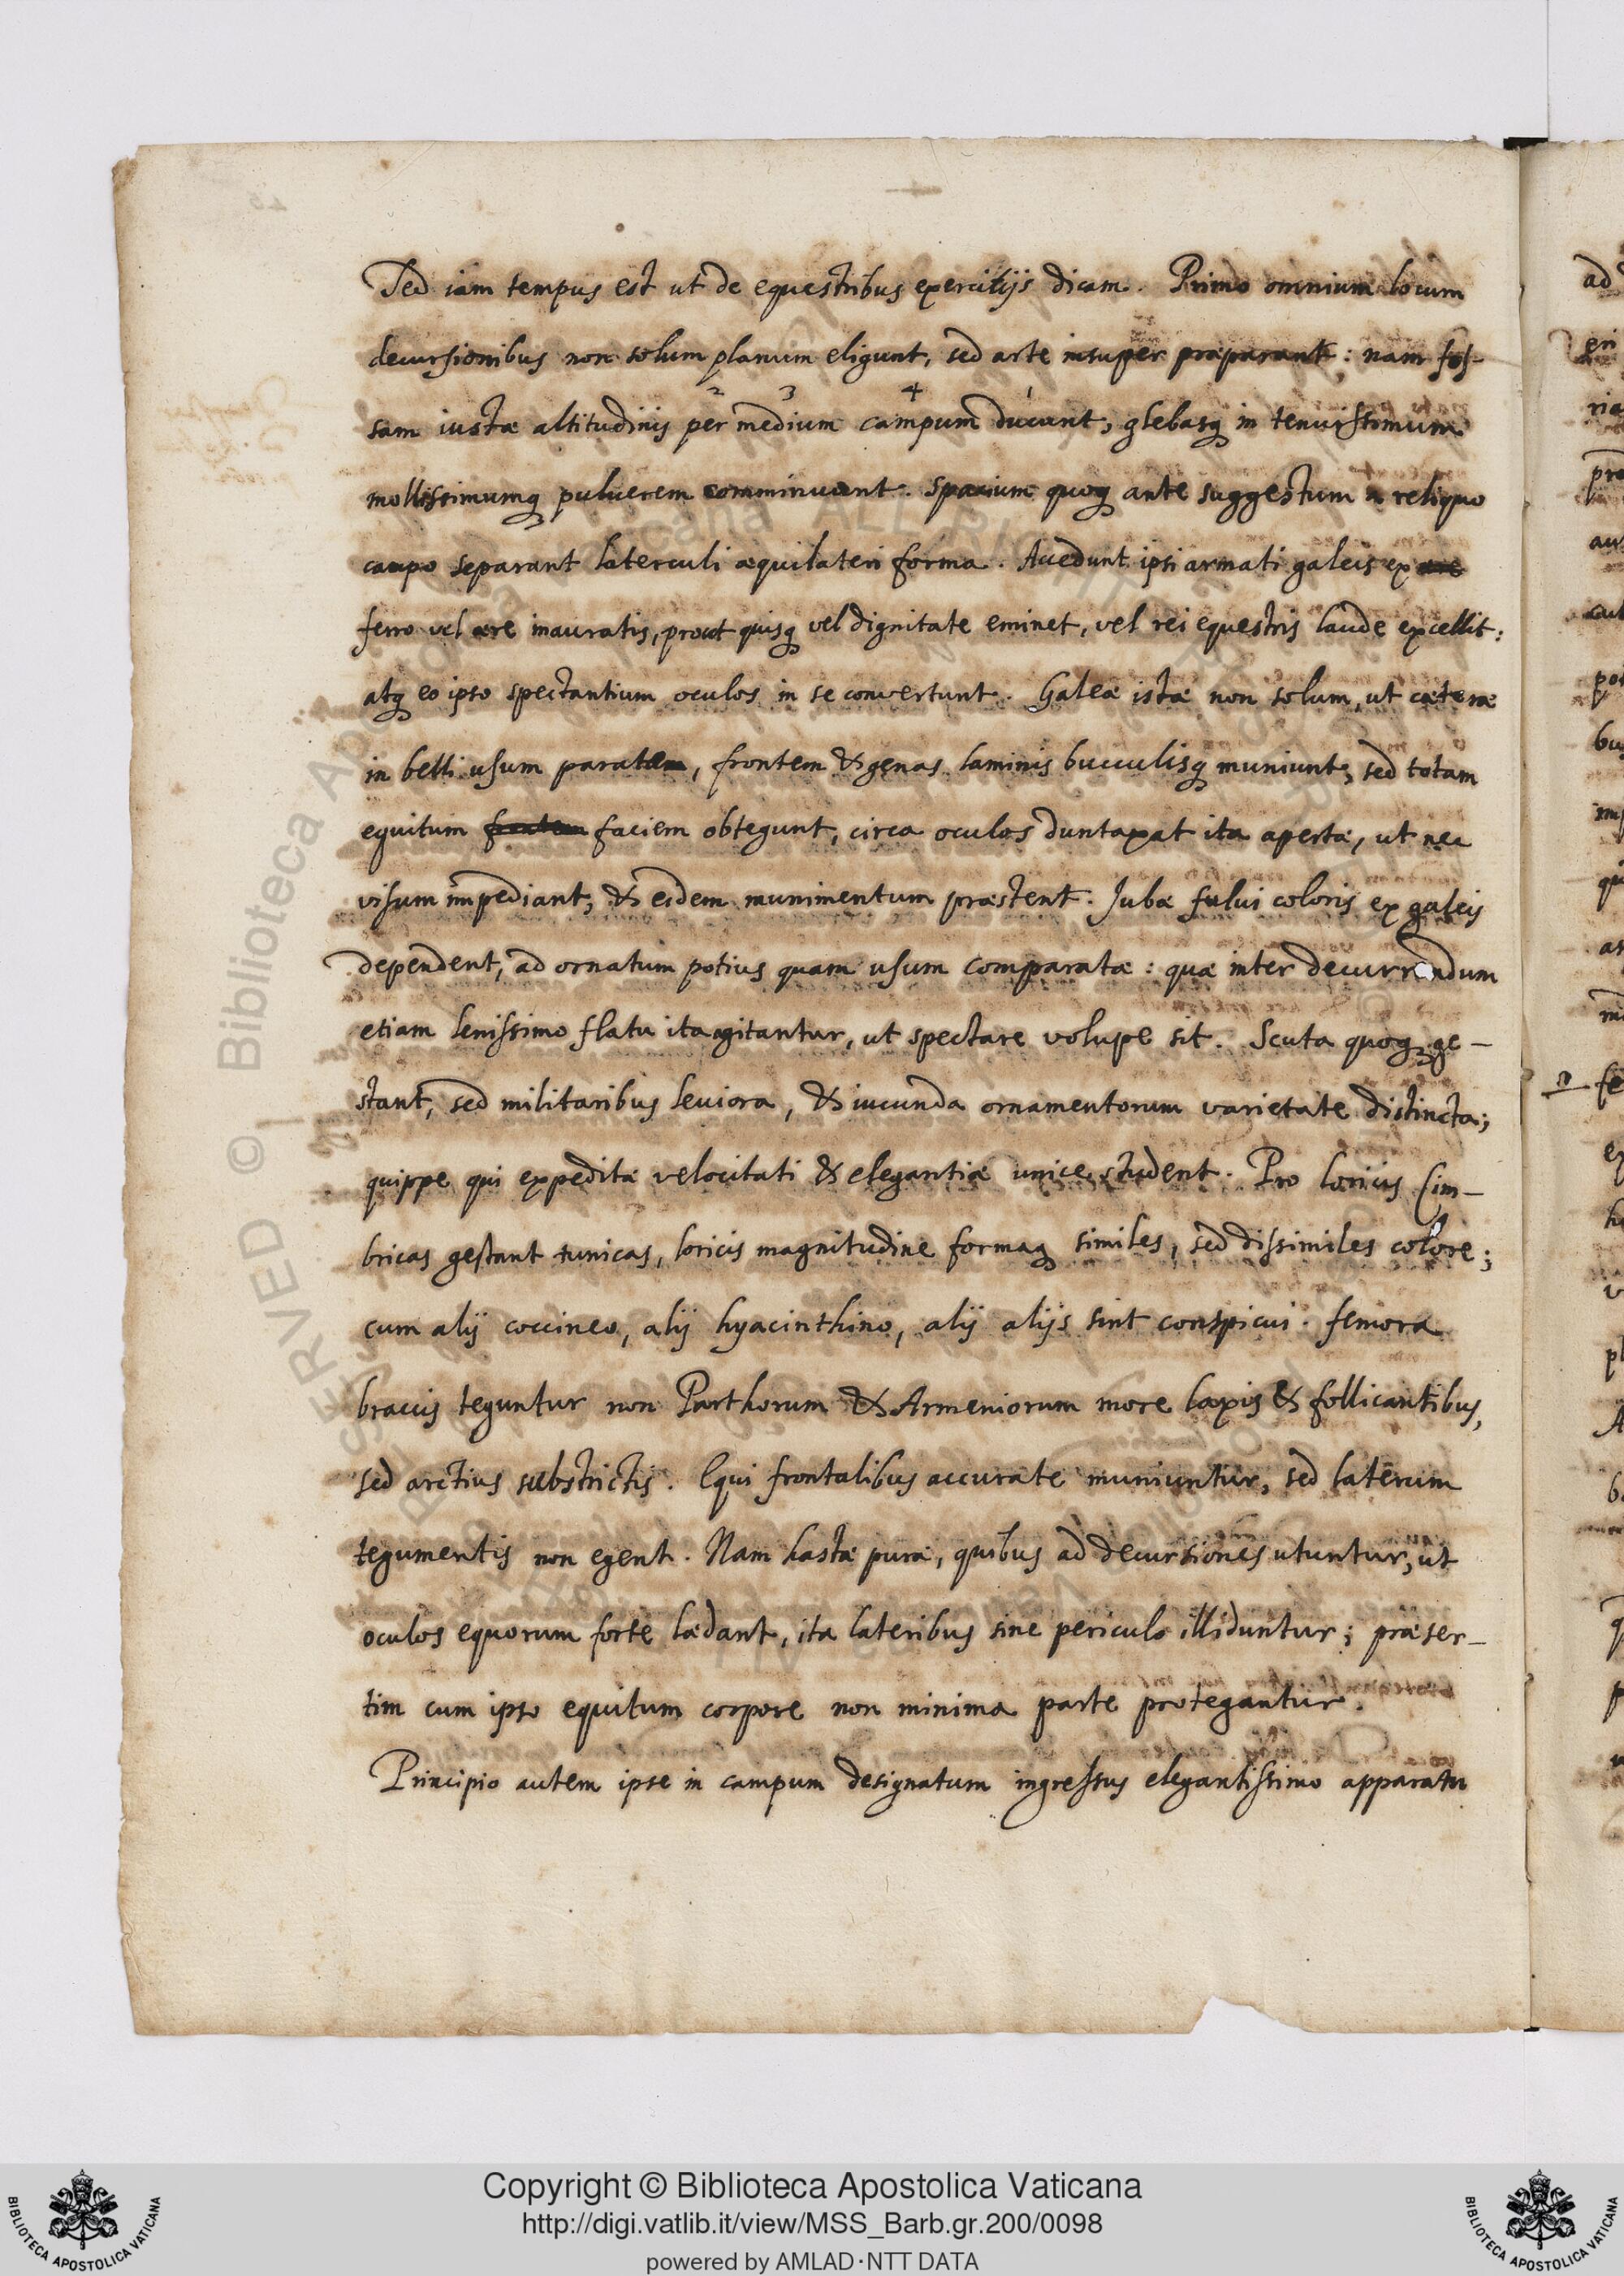 Sed iam tempus est ut de equestribus exercitijs dicam. Primo omnium locum
decursionibus non solum planum eligunt, sed arte insuper præparant: nam fos-
2 3 4 1
sam iustæ altitudinis per medium campum ducunt, glebasq in tenuissimum
mollissimumq puluerem comminuunt. Spatium quoq ante suggestum a reliquo
campo separant laterculi æquilateri forma. Accedunt ipsi armati galeis ex ære
ferro vel ære inauratis, prout quisq vel dignitate eminet, vel rei equestris laude excellit:
atq eo ipso spectantium oculos in se convertunt. Galeæ istæ non solum, ut cæteræ
in belli usum paratæ, frontem & genas laminis bucculisq muniunt, sed totam
equitum frontem faciem obtegunt, circa oculos duntaxat ita apertæ, ut nec
visum impediant, & eidem munimentum præstent. Jubæ fulvi coloris ex galeis
dependent, ad ornatum potius quam usum comparatæ: quæ inter decurrendum
etiam lenissimo flatu ita agitantur, ut spectare volupe sit. Scuta quoq ge-
stant, sed militaribus leviora, & iucunda ornamentorum varietate distincta;
quippe qui expeditæ velocitati & elegantiæ unice student. Pro loricis Cim-
bricas gestant tunicas, loricis magnitudine formaq similes, sed dissimiles colore;
cum alij coccineo, alij hyacinthino, alij alijs sint conspicui. femora
braccis teguntur non Parthorum & Armeniorum more laxis & follicantibus,
sed arctius substrictis. Equi frontalibus accurate muniuntur, sed laterum
tegumentis non egent. Nam hastæ puræ, quibus ad decursiones utuntur, ut
oculos equorum forte lædant, ita lateribus sine periculo illiduntur; præser-
tim cum ipso equitum corpore non minima parte protegantur.
Principio autem ipse in campum designatum ingressus elegantissimo apparatu
Copyright © Biblioteca Apostolica Vaticana
http://digi.vatlib.it/view/MSS_Barb.gr.200/0098
powered by AMLAD·NTT DATA
BIBLIOTECA APOSTOLICA VATICANA
BIBLIOTECA APOSTOLICA VATICANA